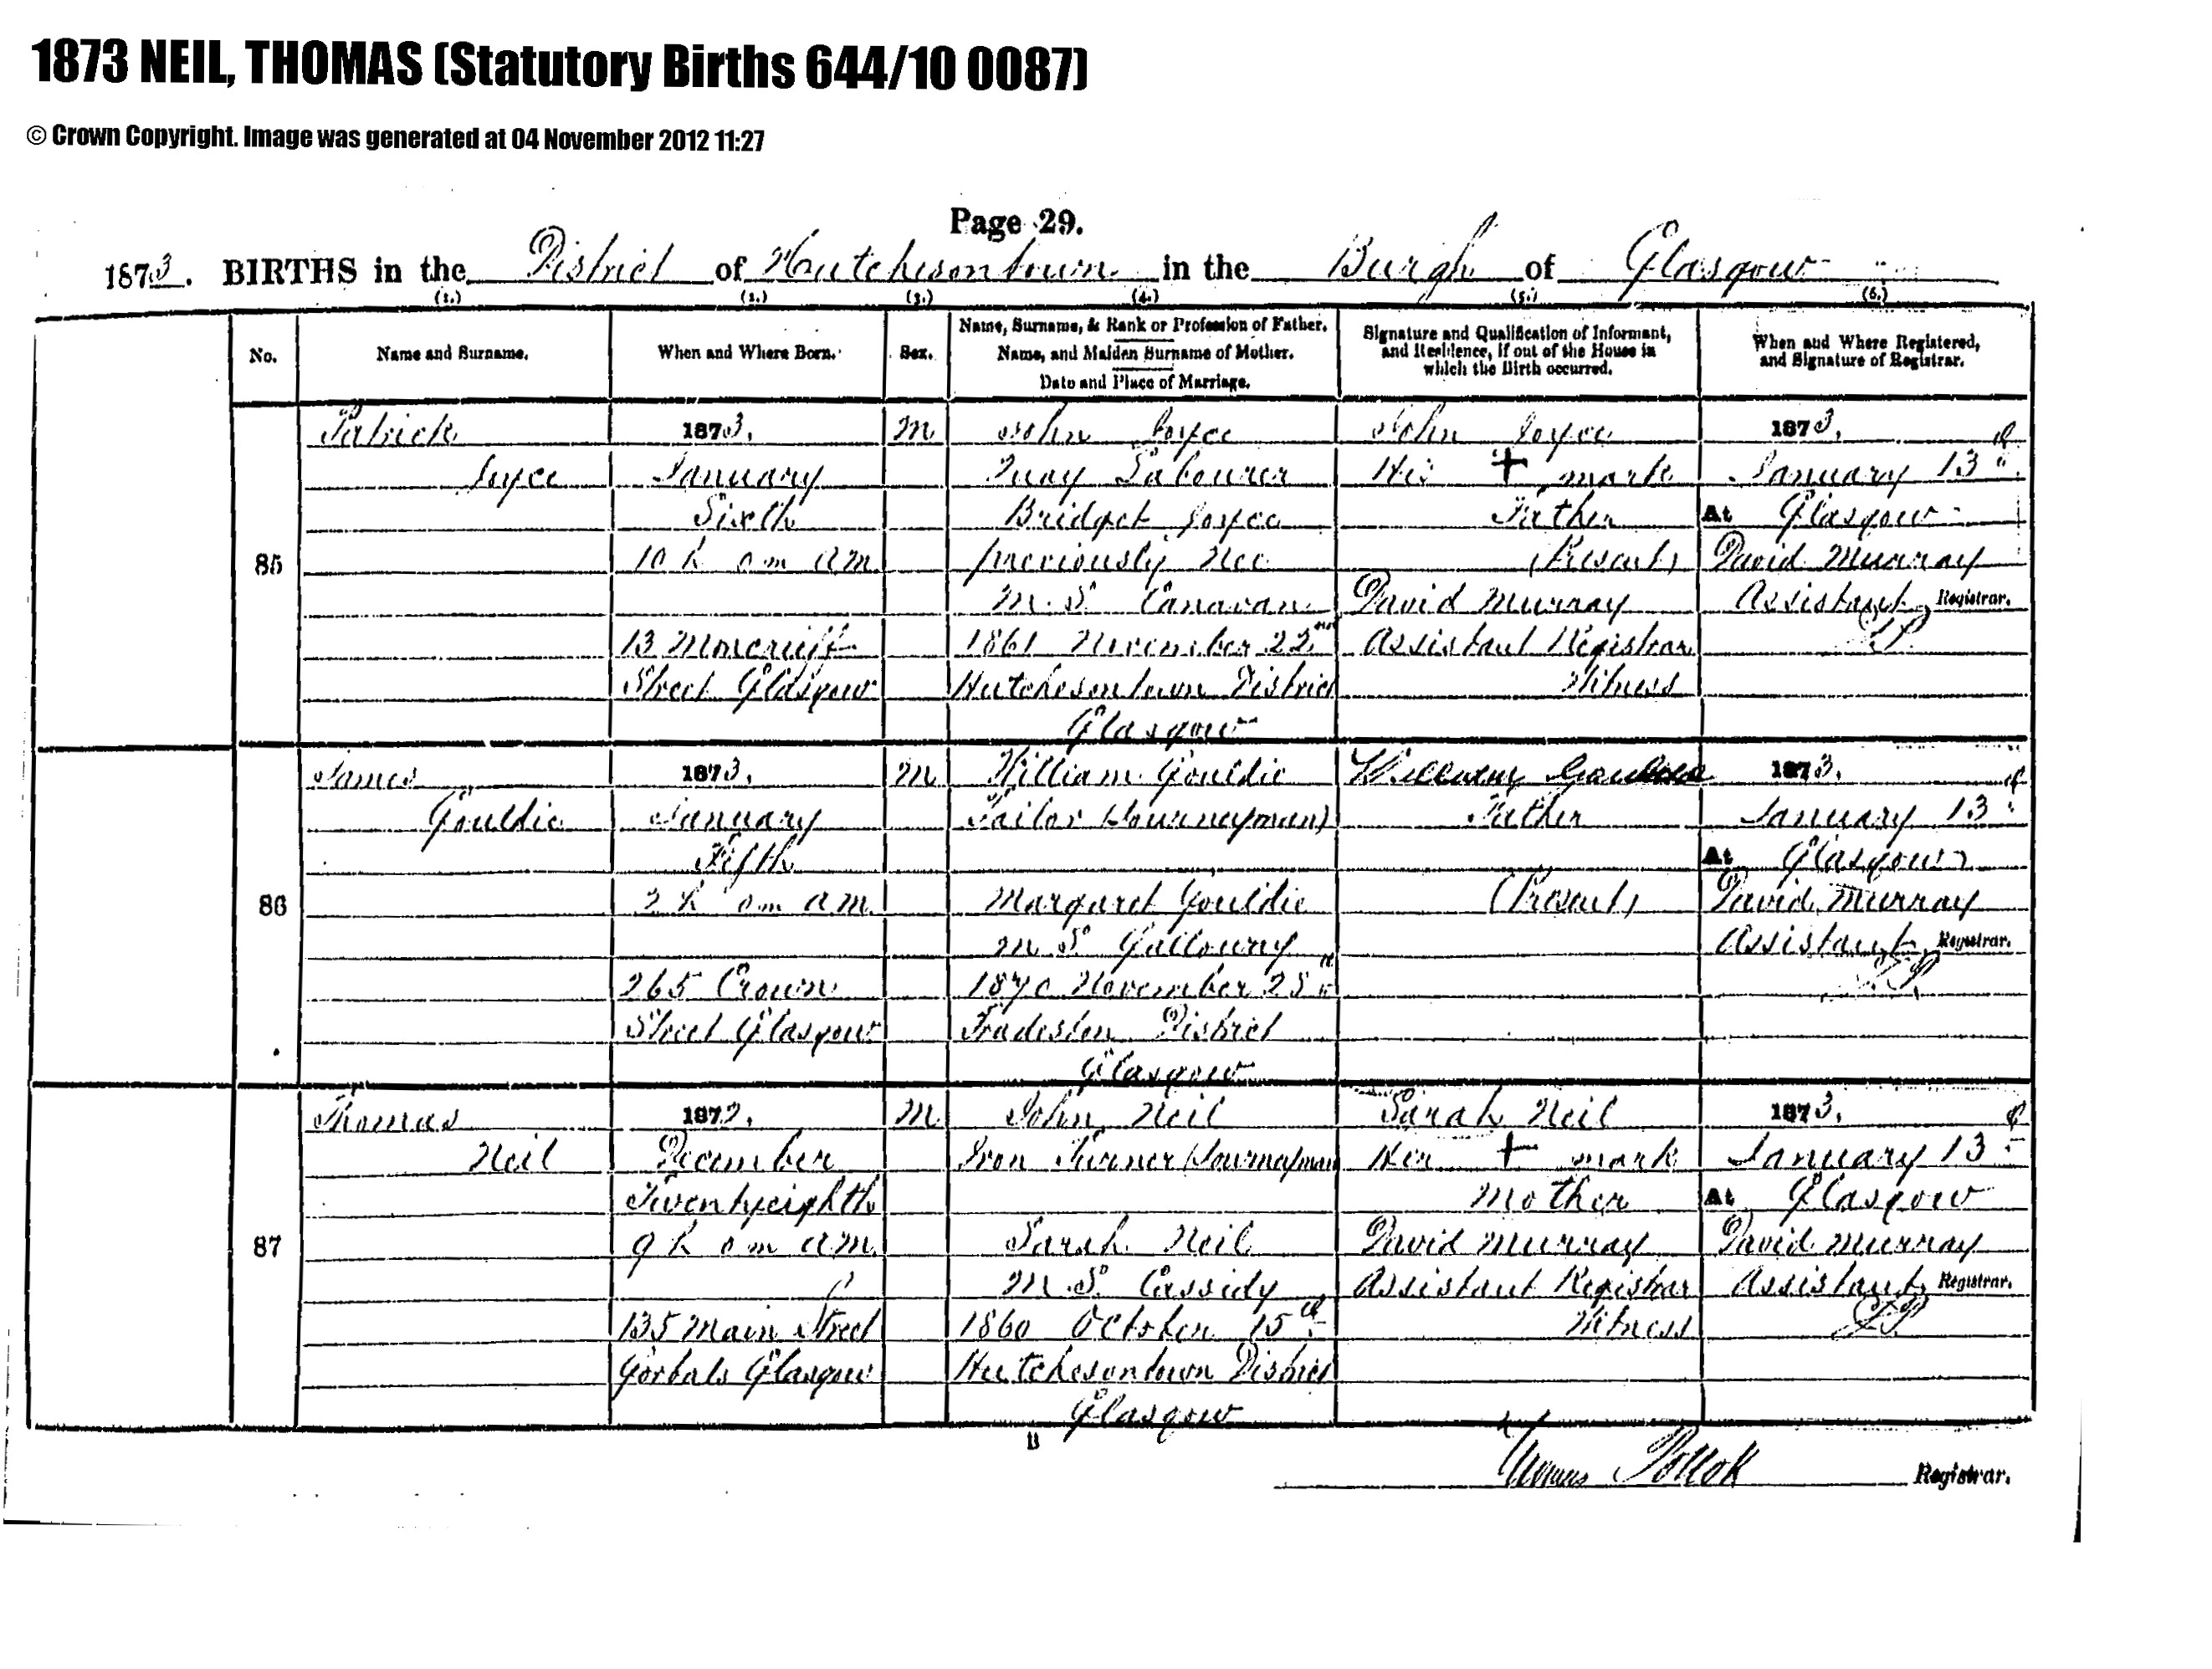 1873 NEIL, THOMAS (Statutory Births 644/10 0087)
© Crown Copyright. Image was generated at 04 November 2012 11:27
Page 29.
1873. BIRTHS in the District of Hutchesontown in the Burgh of Glasgow
(1.) (2.) (3.) (4.) (5.) (6.)
No.
Name and Surname.
When and Where Born.
Sex.
Name, Surname, & Rank or Profession of Father.
Name, and Maiden Surname of Mother.
Date and Place of Marriage.
Signature and Qualification of Informant,
and Residence, if out of the House in
which the Birth occurred.
When and Where Registered,
and Signature of Registrar.
85
Patrick
Joyce
1873.
January
Sixth
10 h 0 m AM
13 Moncrieff
Street Glasgow
M
John Joyce
Quay Labourer
Bridget Joyce
previously Nee
M.S. Canavan
1861 November 22nd
Hutchesontown District
Glasgow
John Joyce
His + mark
Father
(Present)
David Murray
Assistant Registrar
Witness
1873.
January 13th
At Glasgow
David Murray
Assistant Registrar.
T.P.
86
James
Gouldie
1873.
January
Fifth
2 h 0 m AM
265 Crown
Street Glasgow
M
William Gouldie
Tailor (Journeyman)
Margaret Gouldie
M.S. Galloway
1870 November 25th
Tradeston District
Glasgow
William Gouldie
Father
(Present)
1873.
January 13th
At Glasgow
David Murray
Assistant Registrar.
T.P.
87
Thomas
Neil
1872.
December
Twentyeighth
9 h 0 m AM
135 Main Street
Gorbals Glasgow
M
John Neil
Iron Turner (Journeyman
Sarah Neil
M.S. Cassidy
1860 October 15th
Hutchesontown District
Glasgow
Sarah Neil
Her + mark
Mother
David Murray
Assistant Registrar
Witness
1873.
January 13th
At Glasgow
David Murray
Assistant Registrar.
T.P.
B
Thomas Pollok Registrar.